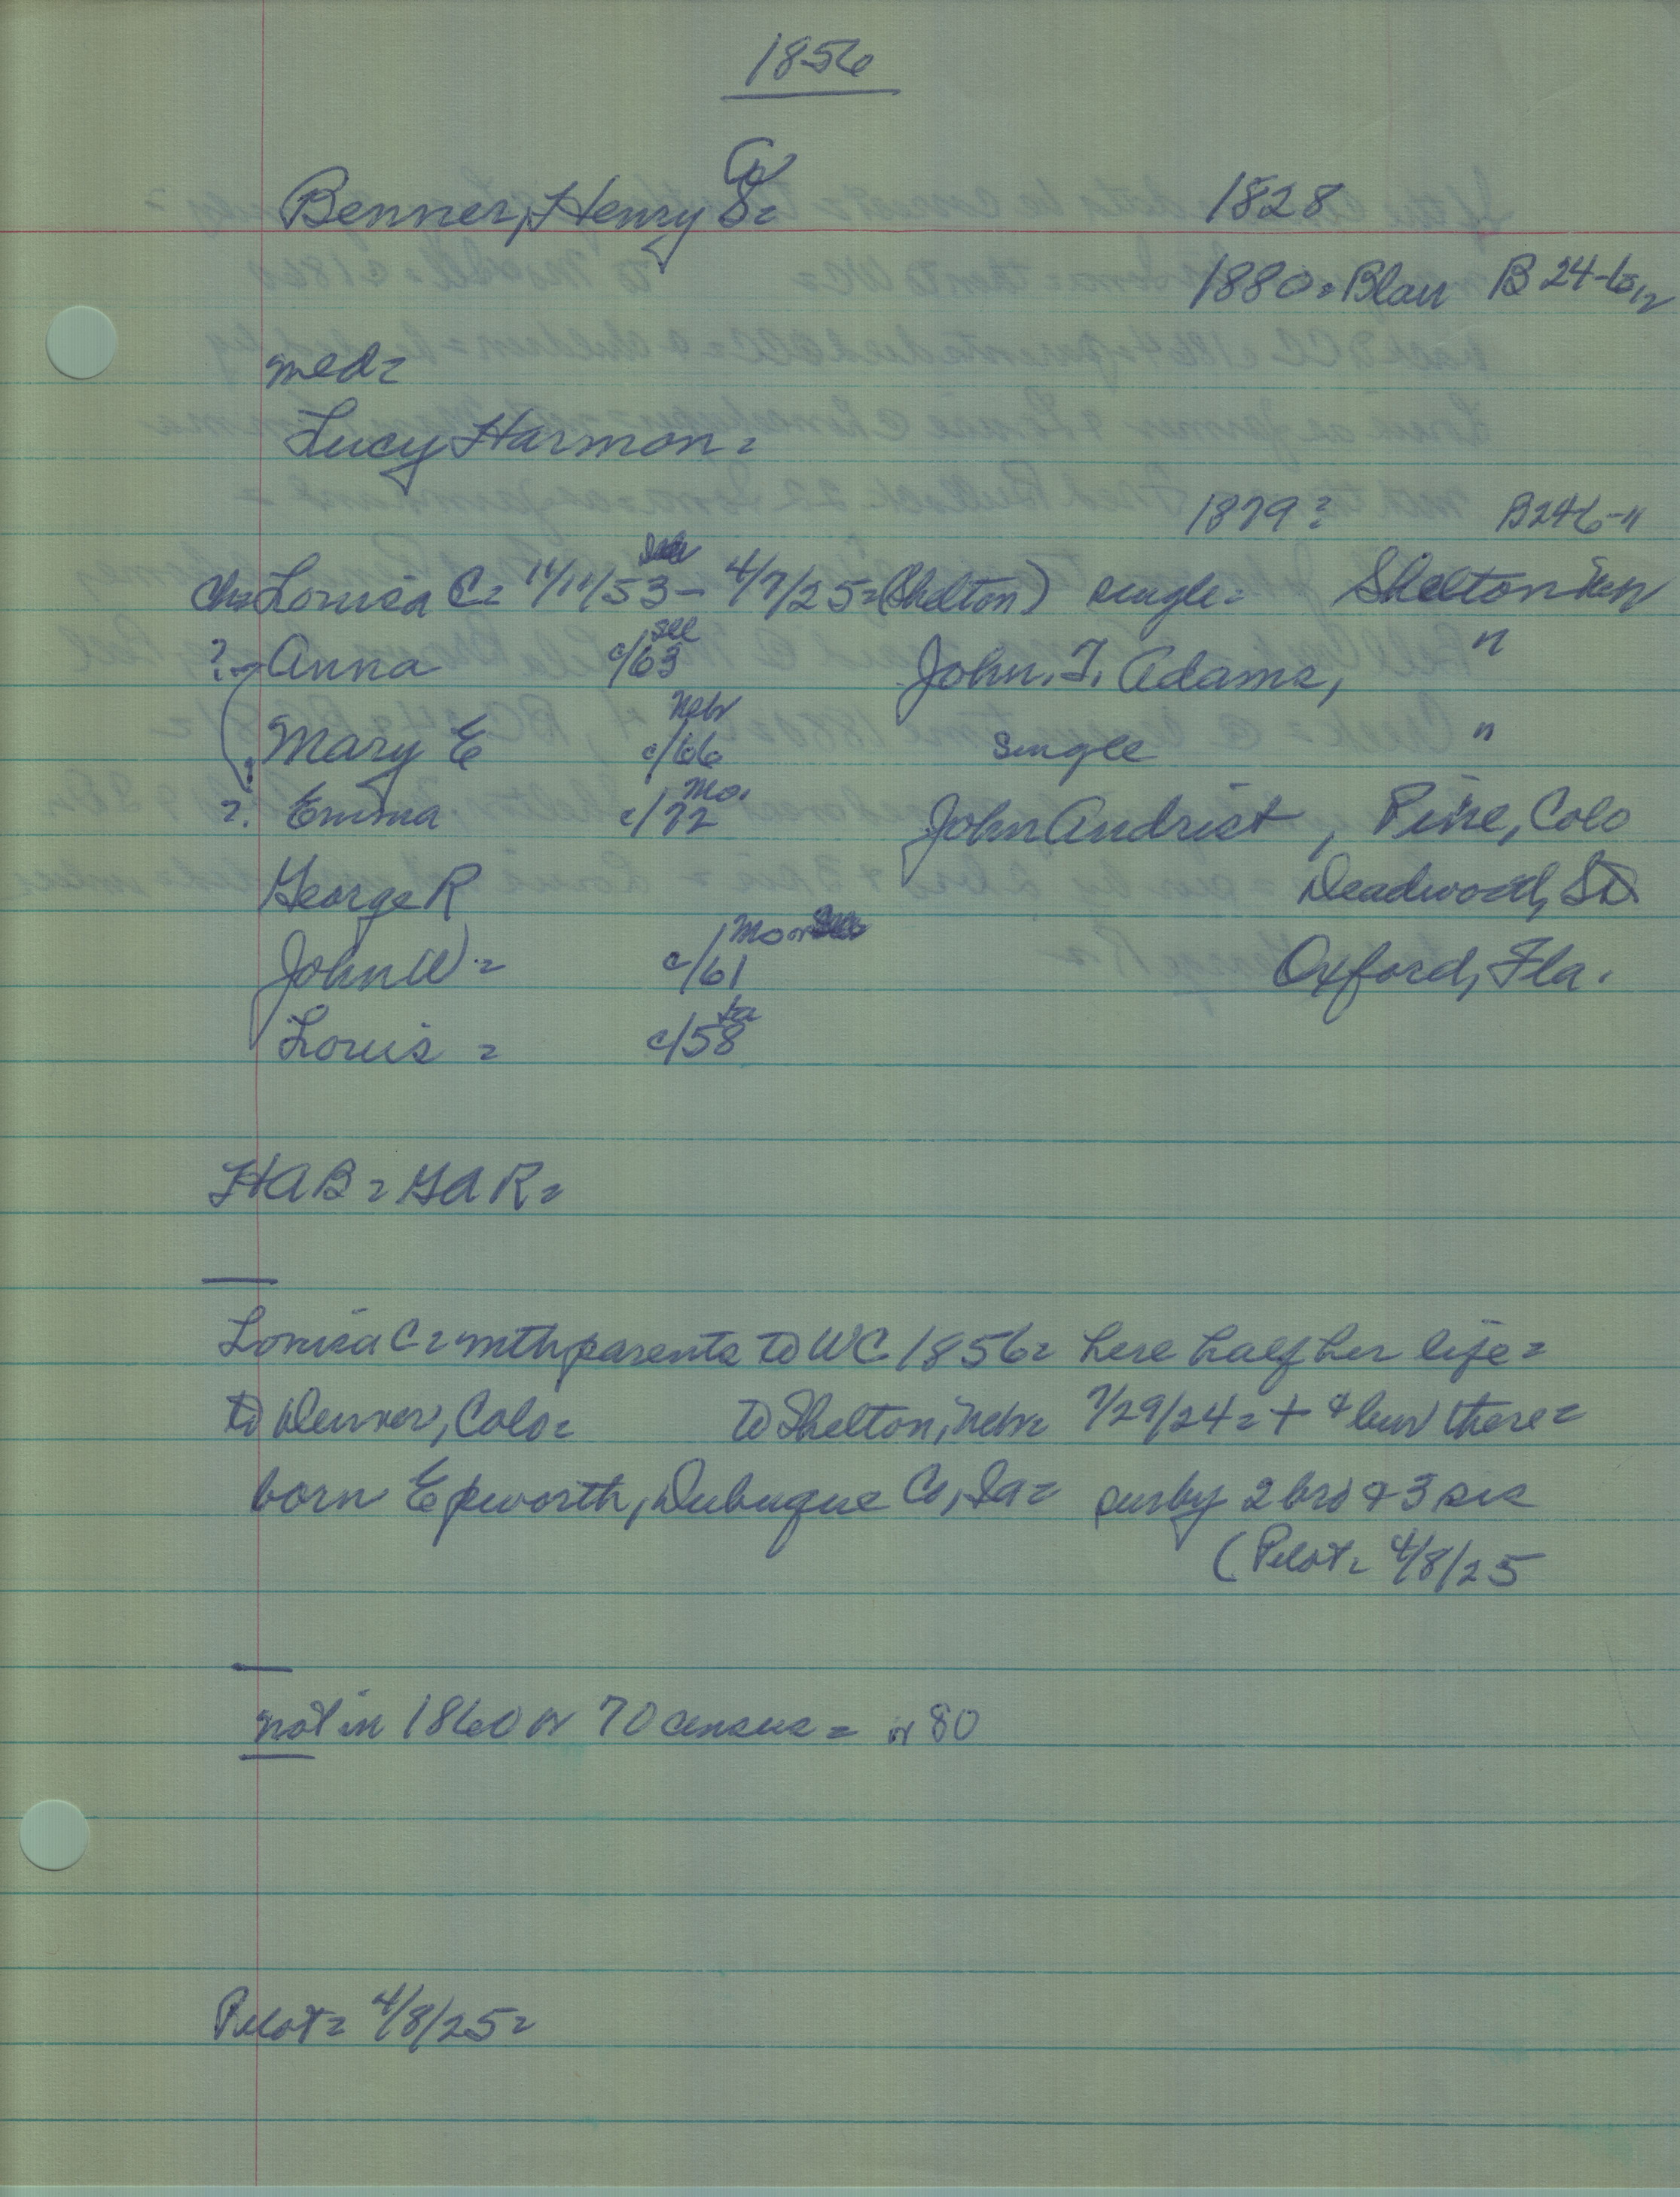 1856
Co
Benner, Henry S= 1828
1880=Blair B 24-
med=
Lucy Harmon=
1879? B246-11
Ch=Louisa C= 11/11/53- 4/7/25=(Shelton) single= Shelton Neb
?- Anna c/63 Ill John. T. Adams, "
Mary E c/66 Nebr single "
?. Emma c/72 Mo. John Andrist, Pine, Colo
George R Deadwood, SD
John W= c/61 Mo or
Oxford, Fla.
Louis = c/58 Ia
HAB=GAR=
Louisa C= mth parents to WC 1856= here half her life=
to Denver, Colo= to Shelton, Neb= 7/29/24=+ & bur there=
born Epworth, Dubuque Co, Ia= surby 2 bro & 3 sis
(Pilot= 4/8/25
not in 1860 or 70 census= or 80
Pilot= 4/8/25=